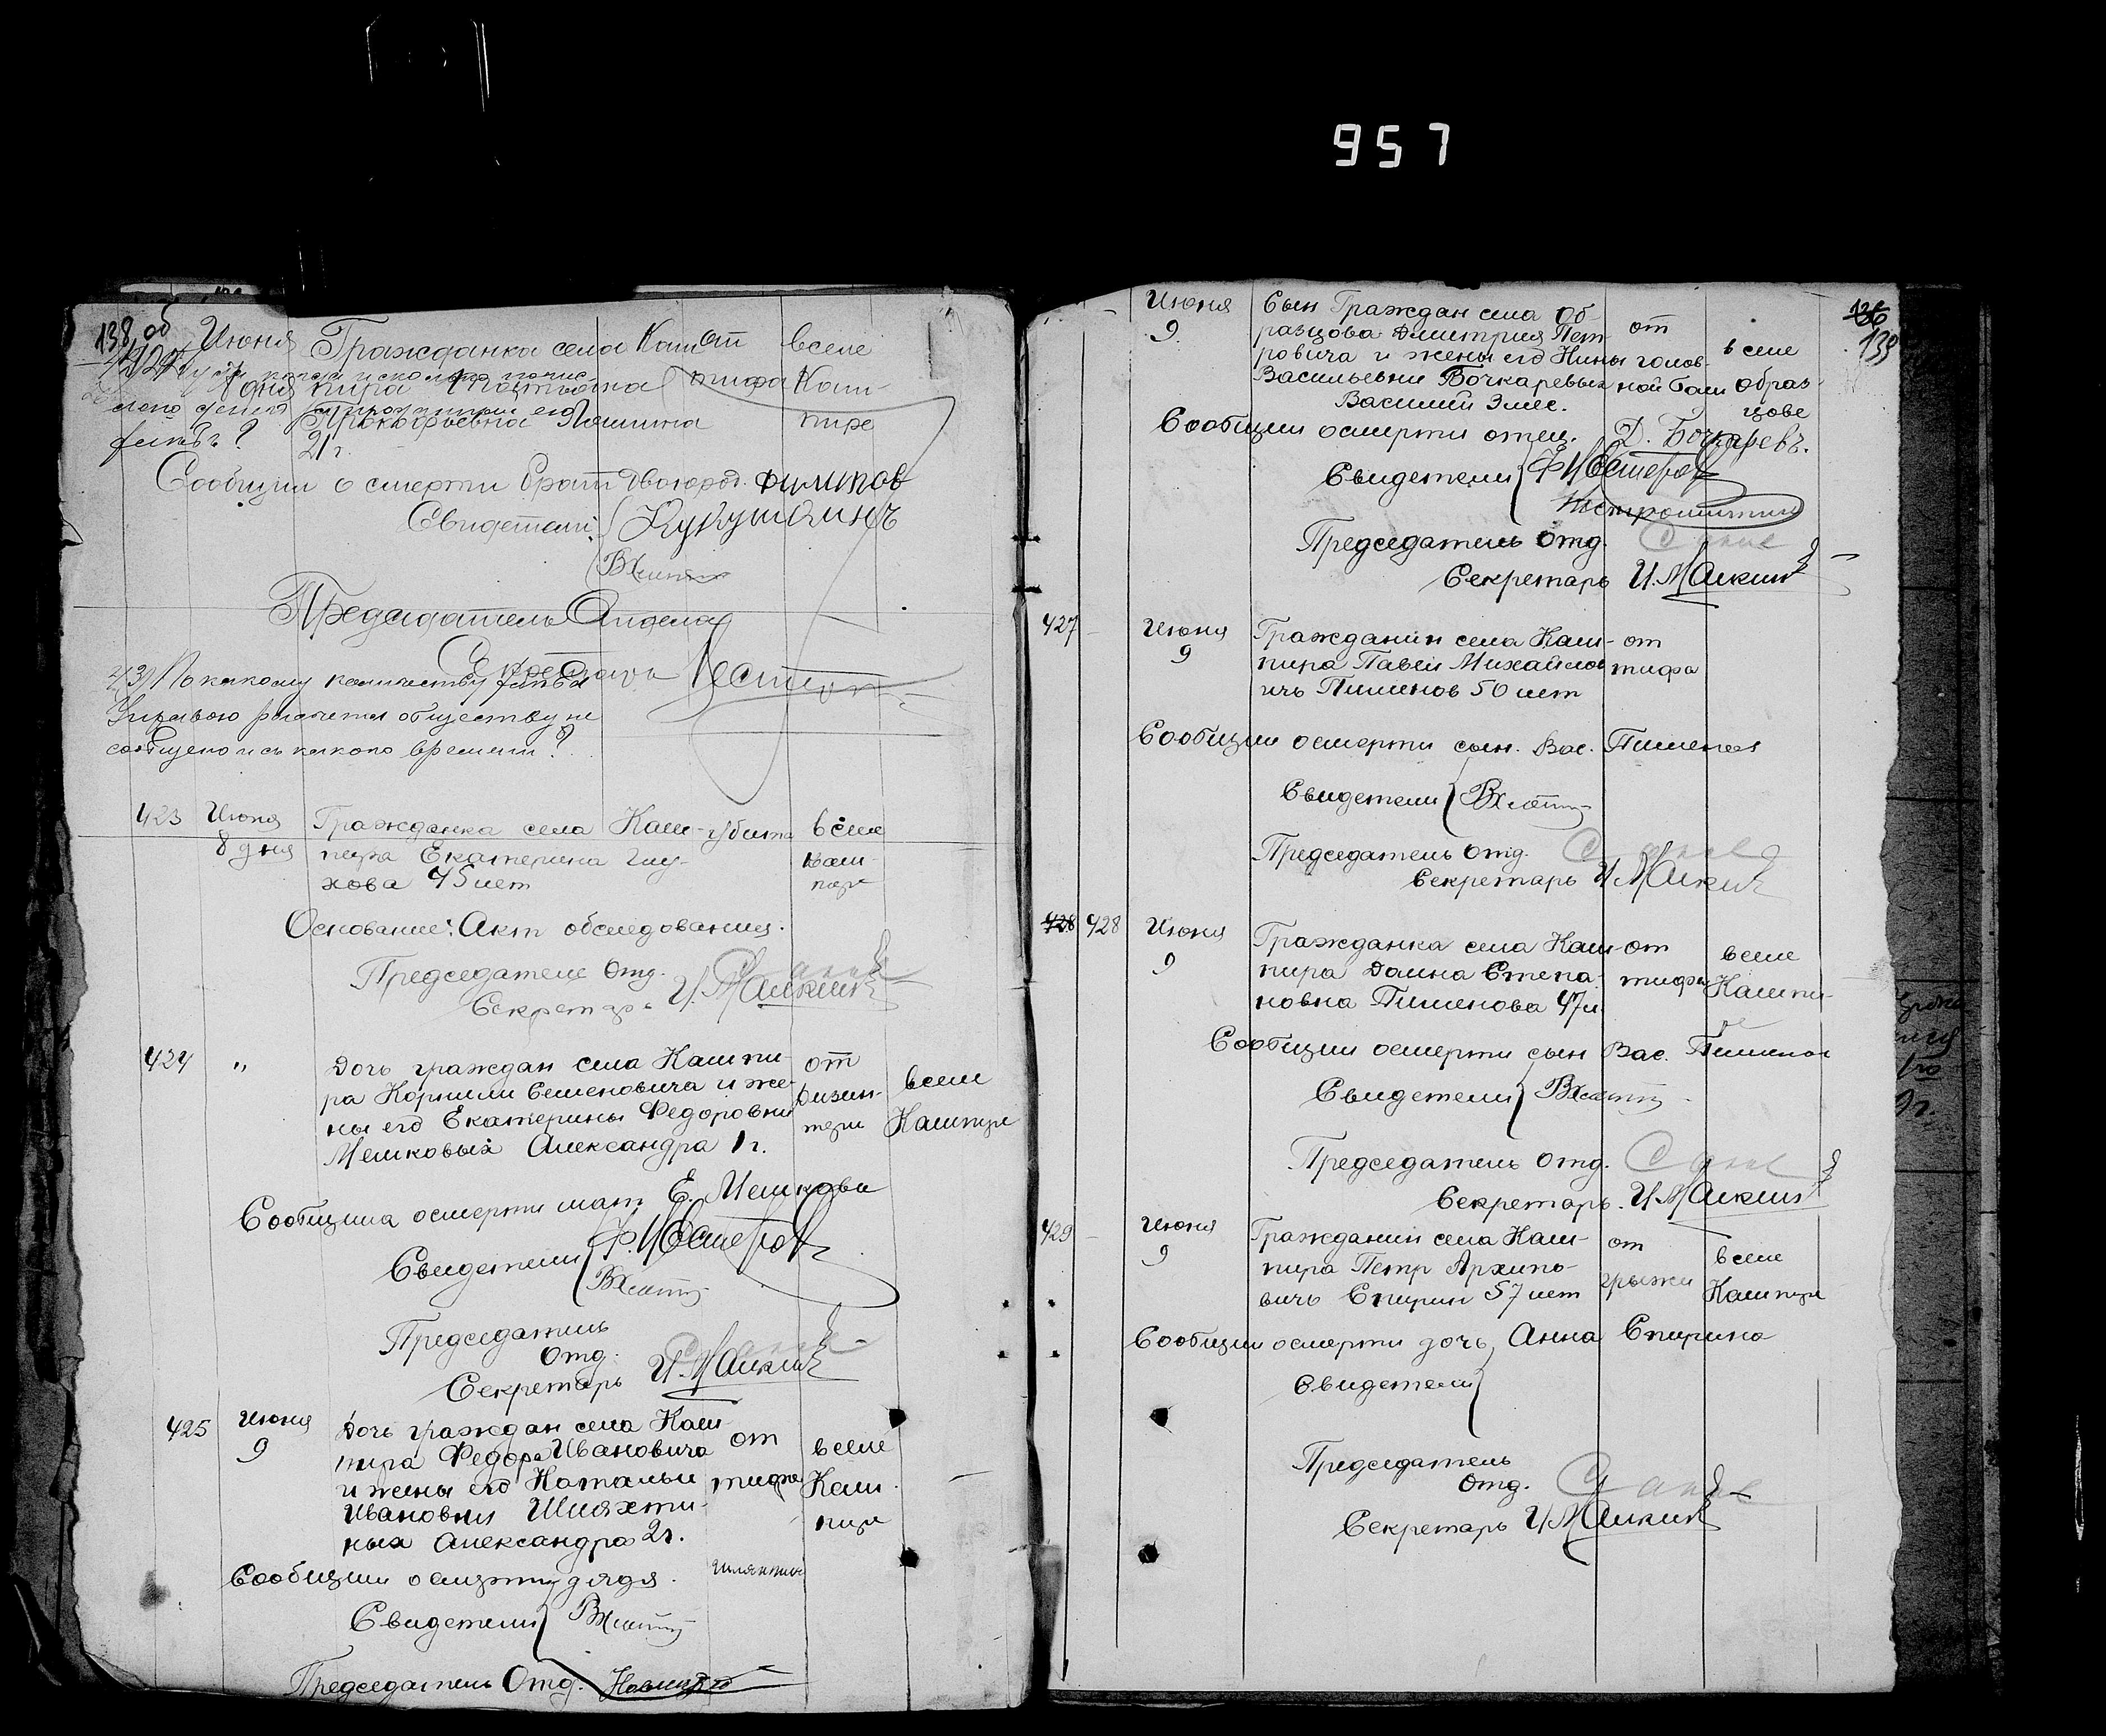 957
138 об
Июня Гражданка села Каш от в селе
8 дня пира тифа Каш-
Прокофьевна пире
21 г.
Сообщил о смерти брат двоюрод. Филипов
Свидетели: Кукушкинъ
Председатель Отдела
Секретарь
23) По какому количеству
обществу не
сообщено и съ какого времени?
423 Июня Гражданка села Каш- убита в селе
8 дня пира Екатерина Глу- Каш-
хова 45 лет пире
Основание: Акт обследования.
Председатель Отд.
Секретарь И. Малкин
424 " Дочь граждан села Кашпи- от
ра Корнили Семеновича и же- дизин- в селе
ны его Екатерины Федоровны тери Кашпире
Мешковых Александра 1 г.
Сообщила о смерти мать Е. Мешкова
Свидетели Ф. Нестеров
Председатель
Отд.
Секретарь И. Малкин
425 Июня Дочь граждан села Каш-
9 пира Федора Ивановича от в селе
и жены его Натальи тифа Каш-
Ивановны Шляхти- пире
ных Александра 2 г.
Сообщил о смерти дядя. Шляхтин
Свидетели
Председатель Отд.
Июня Сын Граждан села Об- 136
9. разцова Дмитрия Пет- от 139
ровича и жены его Нины голов- в селе
Васильевны Бочкаревых ной боли Образ-
Василий 3 мес. цове
Сообщил о смерти отец. Д. Бочкаревъ.
Свидетели Ф. Нестеров
Председатель Отд.
Секретарь И. Малкин
427 Июня Гражданин села Каш- от
9 пира Павел Михайлов тифа
ичъ Пименов 50 лет
Сообщил о смерти сын. Вас. Пименов
Свидетели
Председатель Отд.
Секретарь И. Малкин
428 428 Июня Гражданка села Каш- от в селе
9 пира Домна Степа- тифа Кашпи-
новна Пименова 47 л. ре
Сообщил о смерти сын Вас. Пименов
Свидетели
Председатель Отд.
Секретарь. И. Малкин
429 Июня Гражданин села Каш- от в селе
9 пира Петр Архипо- грыжи Кашпире
вичъ Спирин 57 лет
Сообщил о смерти дочь Анна Спирина
Свидетели
Председатель
Отд.
Секретарь И. Малкин